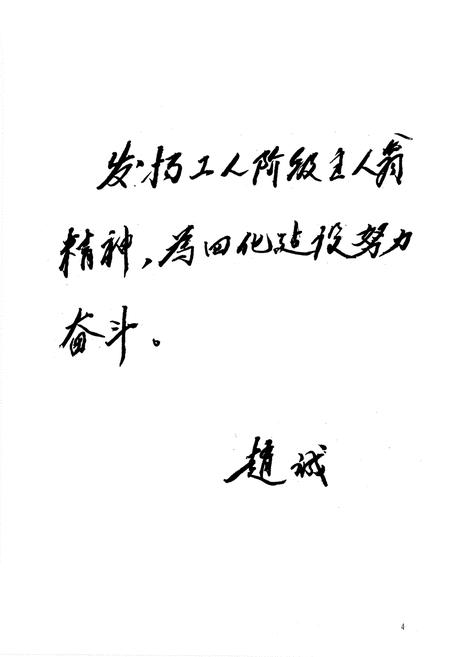 发扬工人阶级主人翁
精神，為四化建设努力
奋斗。
趙诚
4